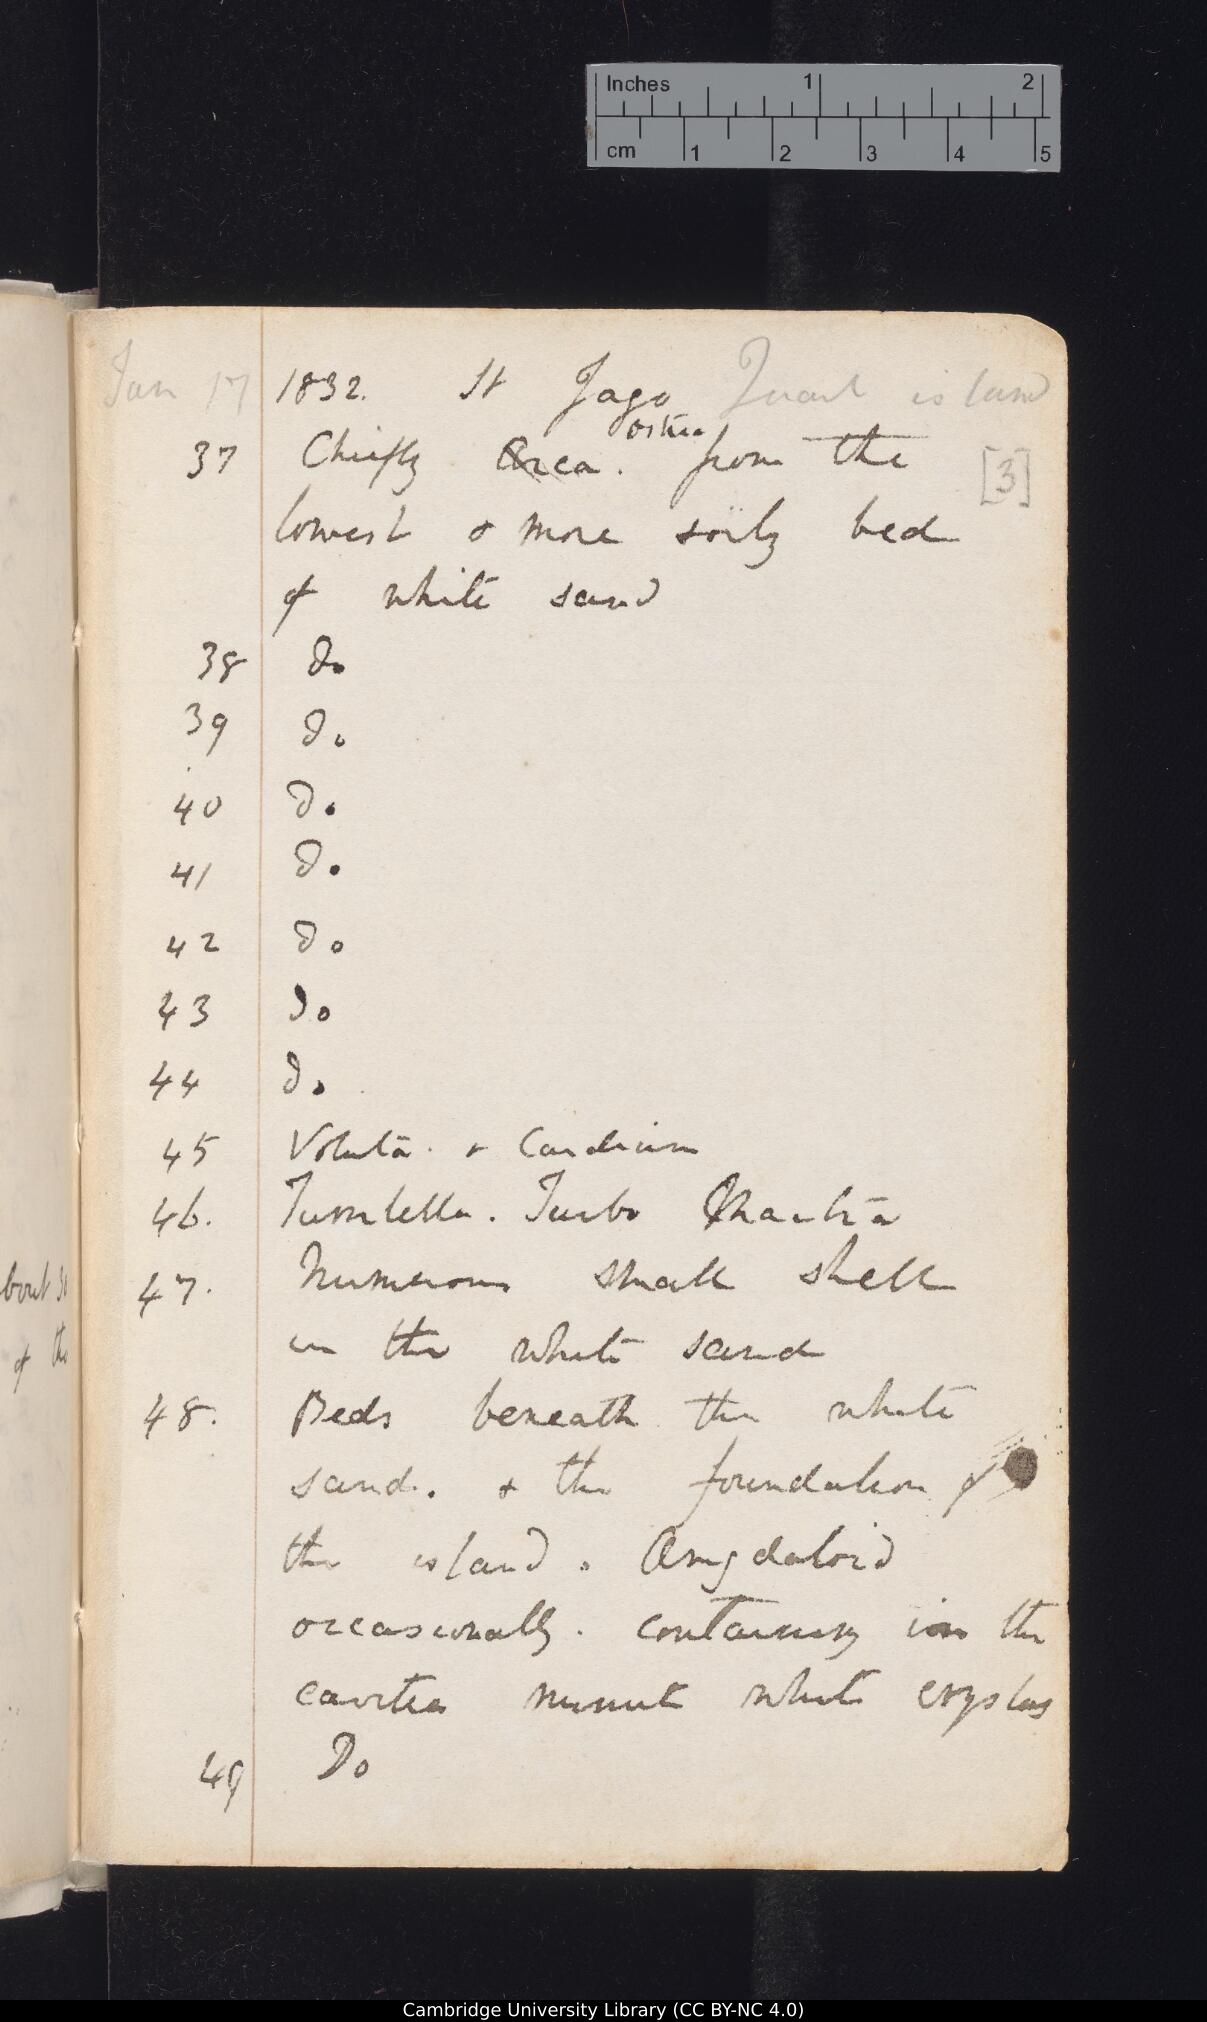 Inches 1 2
cm 1 2 3 4 5
Jan 17 1832. St Jago Quail island
ostrea
37 Chiefly Arca. from the
[3]
lowest & more soily bed
of white sand
38 do
39 do
40 do
41 do
42 do
43 do
44 do
45 Voluta. & Cardium
46. Turritella. Turbo
47. Numerous small shell
in the white sand
48. Beds beneath the white
sand. & the foundation of
the island. Amygdaloid
occasionally. containing in the
cavities minute white crystas
49 Do
bout 30
of the
Cambridge University Library (CC BY-NC 4.0)